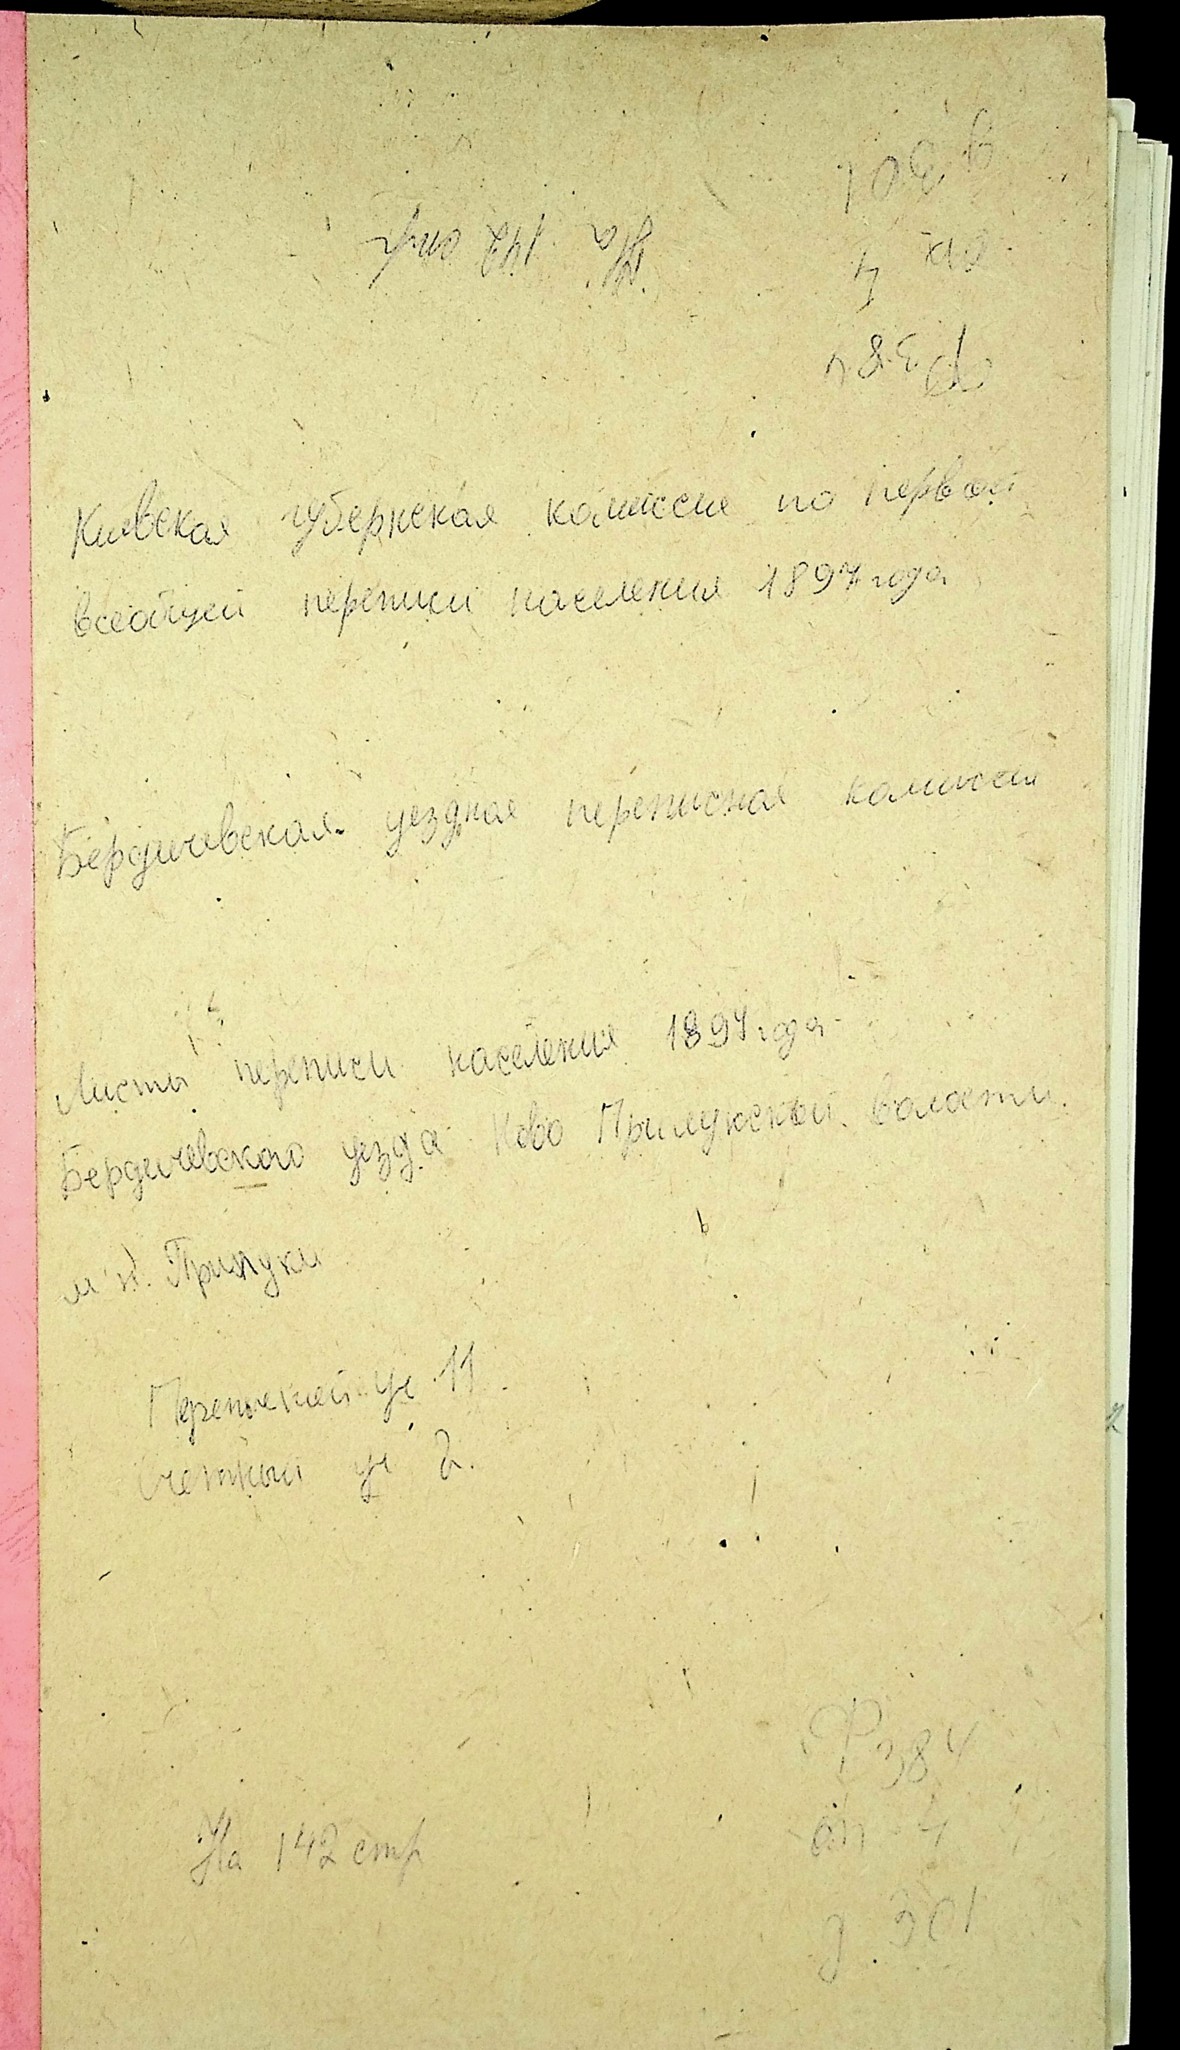 д 301
На 142 стр оп 4
Ф 384
Киевская губернская комиссия по первой
всеобщей переписи населения 1897 года
Бердичевская уездная переписная комиссия
Листы переписи населения 1897 года
Бердичевского уезда Ново Прилукской волости
м Н. Прилуки
Переписной уч 11
Счетный уч 2.
Ф 384
На 142 стр оп 4
д. 301